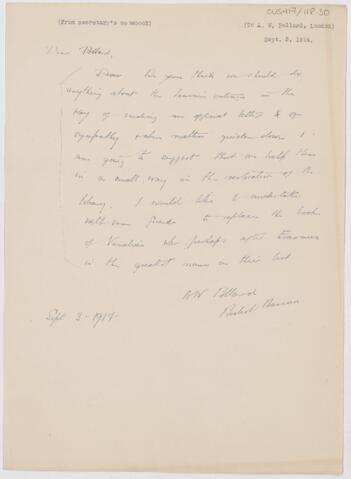 CUSH17/118 30
(From secretary's notebook)
(To A. W. Pollard, London)
Sept. 3, 1914.
Dear Pollard,
Do you think we should do
anything about the Louvain outrage in the
way of sending an appeal letter & of
sympathy when matters quieten down. I
was going to suggest that we help them
in a small way in the restoration of the
library. I would like to undertake
with some friends to replace the books
of Vesalius who perhaps after Erasmus
is the greatest name on their list
AW Pollard
Sept 3 - 1914.